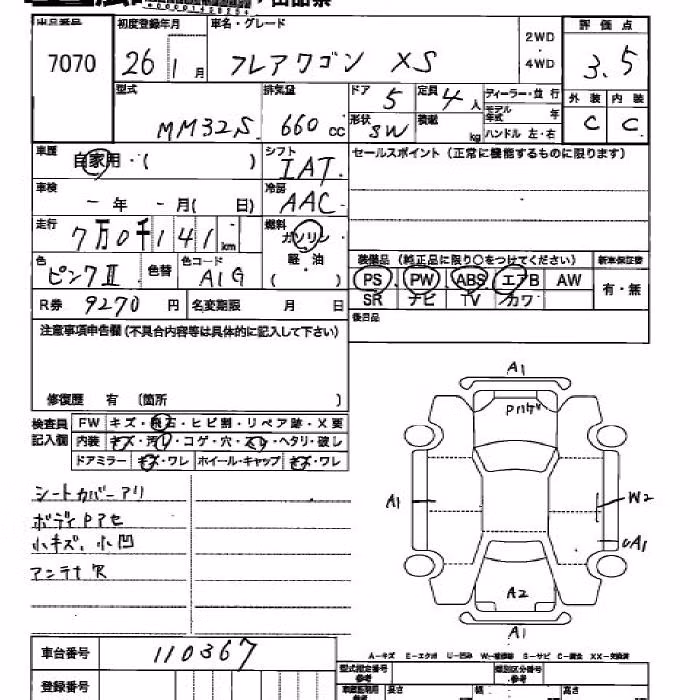 出品番号 初度登録年月 車名・グレード
7070 26 1月 フレアワゴン XS 2WD・4WD
評価点
3.5
外装 内装
C C
型式 MM32S 排気量 660 cc
ドア 5 定員 4人 ディーラー・並行
形状 SW 積載 kg モデル年式 年
ハンドル 左・右
車歴 自家用・( ) シフト IAT
セールスポイント (正常に機能するものに限ります)
車検 - 年 - 月( 日) 冷房 AAC
走行 7万0千141 km 燃料 ガソリン
軽・油
( )
色 ピンクII 色替 色コード A1G
装備品 (純正品に限り○をつけてください) 新車保証書
PS PW ABS エアB AW 有・無
SR ナビ TV カワ
R券 9270円 名変期限 月 日
後日品
注意事項申告欄 (不具合内容等は具体的に記入して下さい)
修復歴 有 (箇所 )
検査員記入欄 FW キズ・飛石・ヒビ割・リペア跡・X要
内装 キズ・汚レ・コゲ・穴・スレ・ヘタリ・破レ
ドアミラー キズ・ワレ ホイール・キャップ キズ・ワレ
シートカバーアリ
ボディPアセ
小キズ、小凹
アンテナ欠
A1
A1
W2
UA1
A2
A1
A-キズ E-エクボ U-凹み S-サビ
車台番号 110367
登録番号
型式指定番号 参考
類別区分番号 参考
長さ 幅 高さ